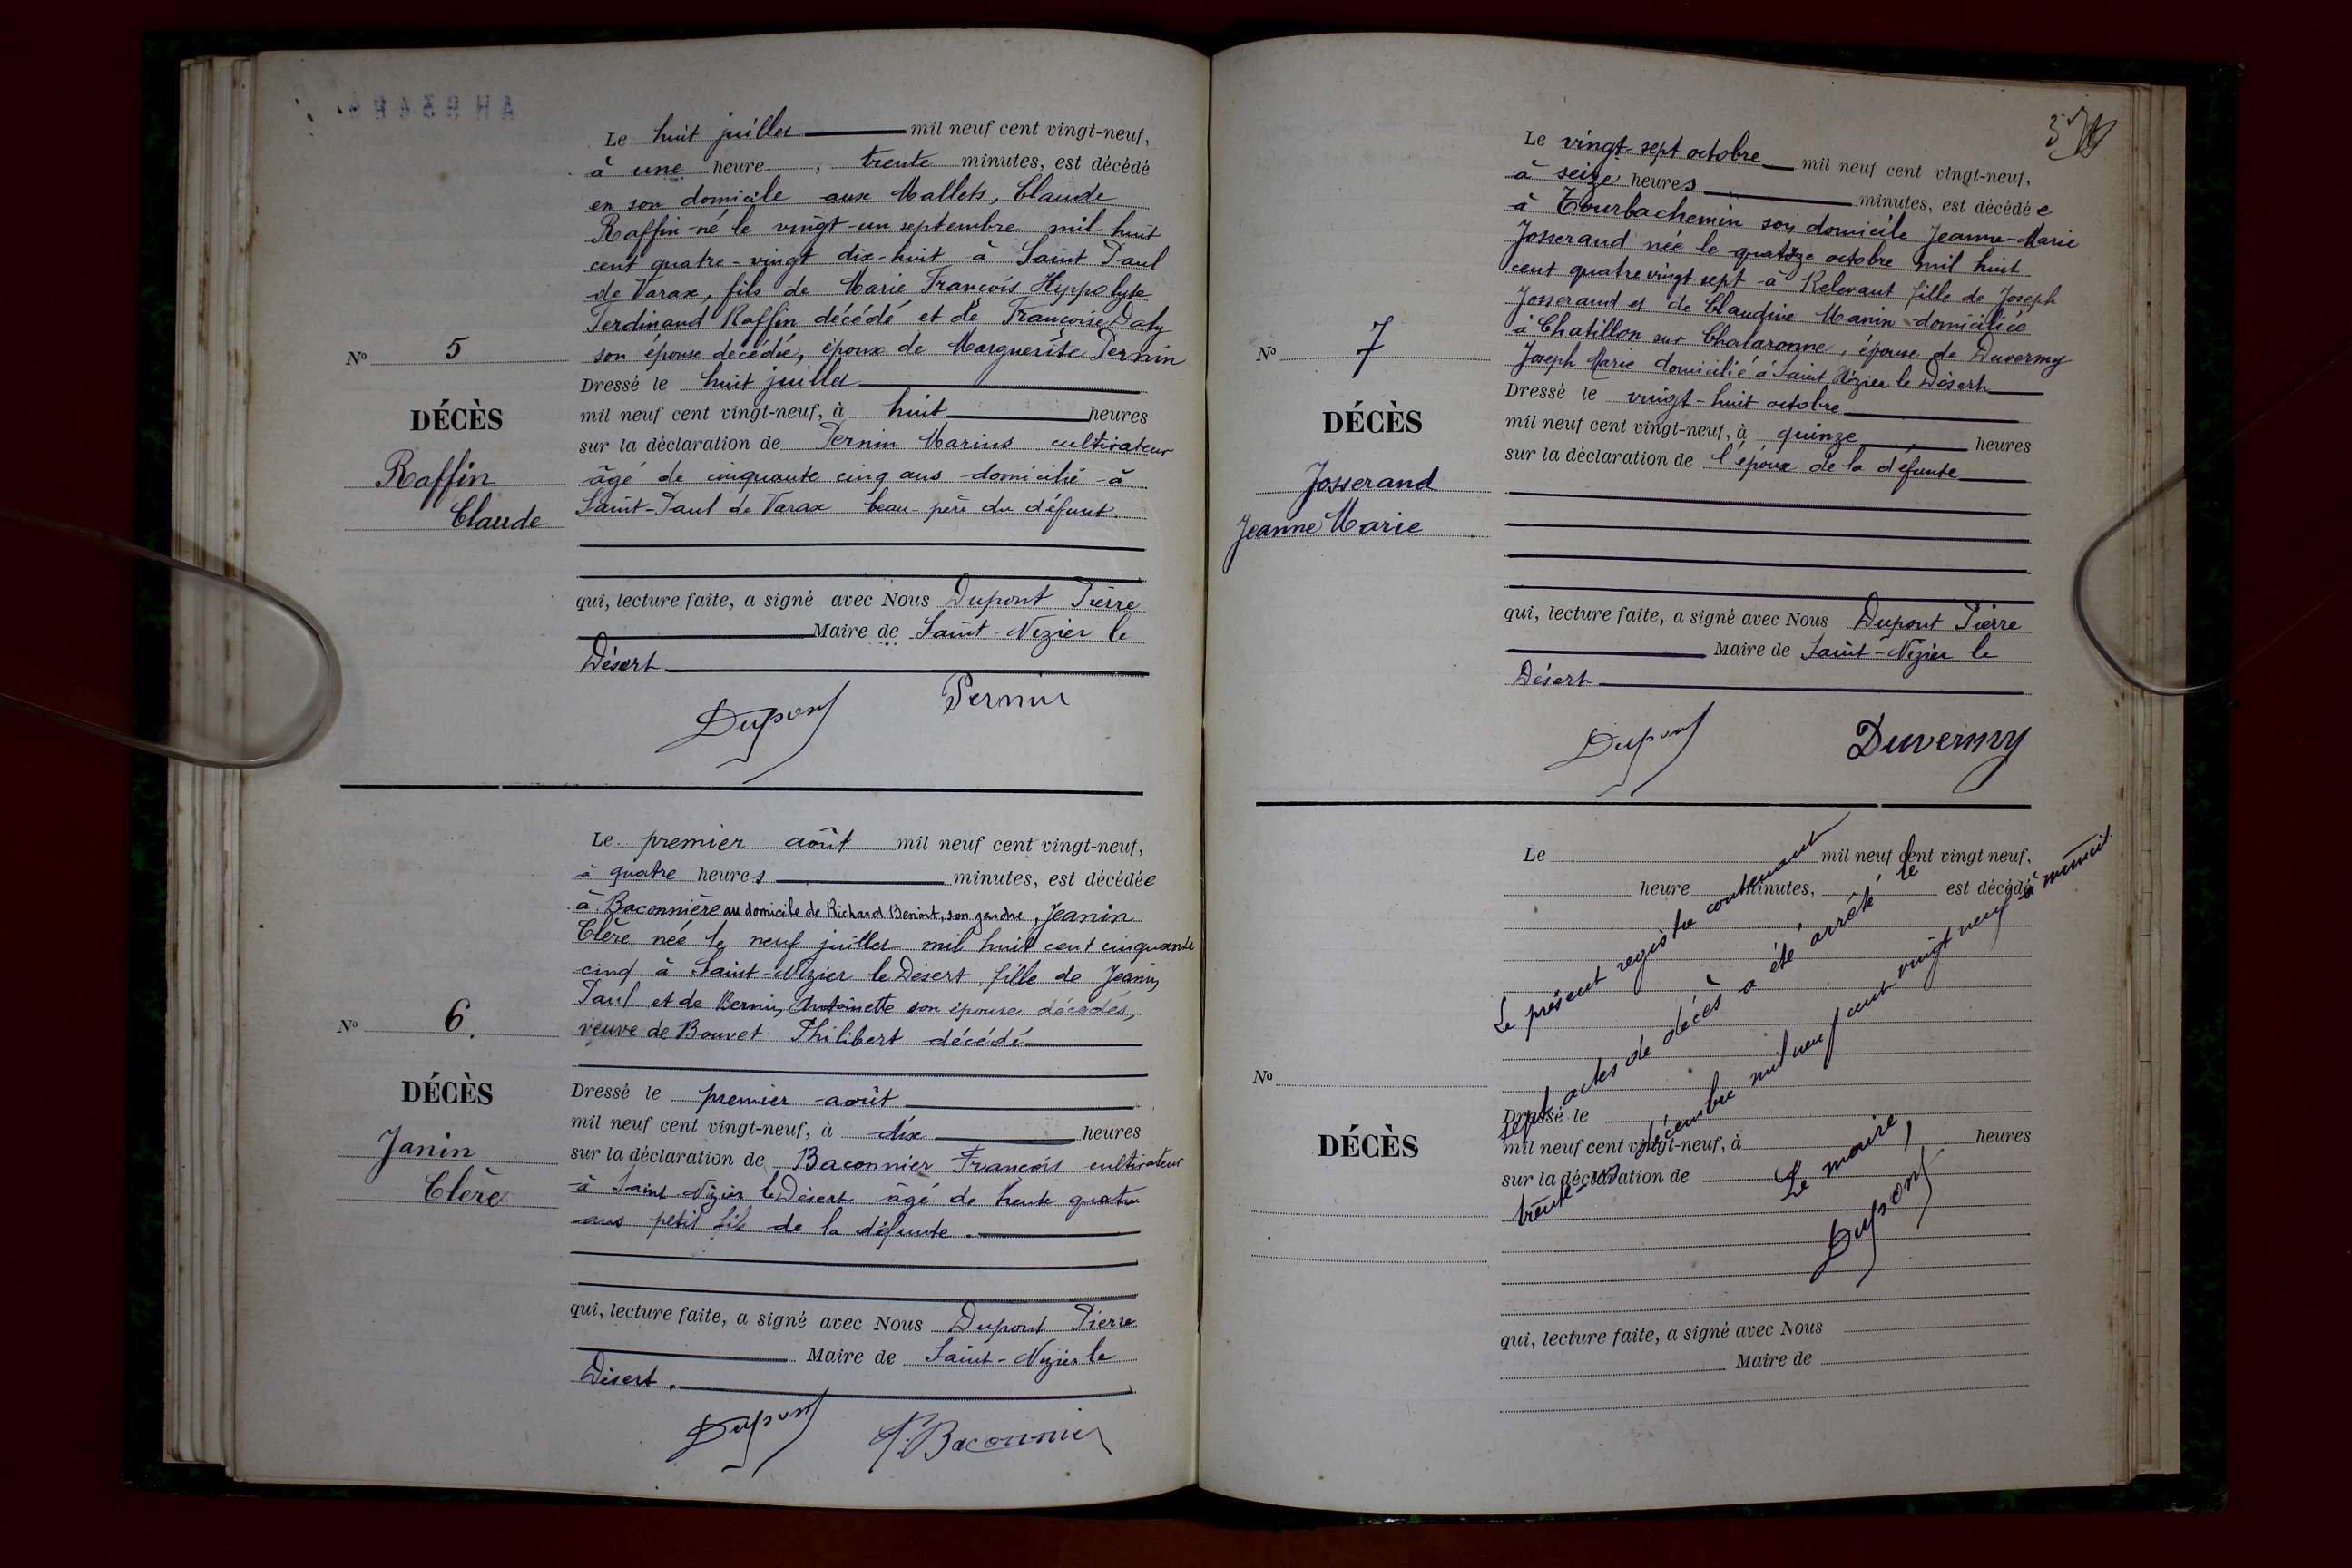 Le huit juillet mil neuf cent vingt-neuf,
à une heure, trente minutes, est décédé
en son domicile aux Mallets, Claude
Raffin né le vingt-un septembre mil-huit
cent quatre-vingt dix-huit à Saint Paul
de Varax, fils de Marie François Hyppolyte
Ferdinand Raffin décédé et de Françoise Daty
son épouse décédée, époux de Marguerite Pernin
Dressé le huit juillet
mil neuf cent vingt-neuf, à huit heures
sur la déclaration de Pernin Marius cultivateur
âgé de cinquante cinq ans domicilié à
Saint-Paul de Varax beau-père du défunt.
qui, lecture faite, a signé avec Nous Dupont Pierre
Maire de Saint-Nizier le
Désert
Dupont Pernin
N° 5
DÉCÈS
Raffin
Claude
Le premier août mil neuf cent vingt-neuf,
à quatre heures minutes, est décédée
à Baconnière au domicile de Richard Benoit, son gendre, Jeanin
Clère née le neuf juillet mil huit cent cinquante
cinq à Saint-Nizier le Désert, fille de Jeanin
Paul et de Bernin Antoinette son épouse décédés,
veuve de Bouvet Philibert décédé
Dressé le premier août
mil neuf cent vingt-neuf, à dix heures
sur la déclaration de Baconnier François cultivateur
à Saint Nizier le Désert âgé de trente quatre
ans petit fils de la défunte.
qui, lecture faite, a signé avec Nous Dupont Pierre
Maire de Saint-Nizier le
Désert.
Dupont F. Baconnier
N° 6.
DÉCÈS
Janin
Clère
Le vingt-sept octobre mil neuf cent vingt-neuf,
à seize heures minutes, est décédée
à Tourbachemin son domicile Jeanne-Marie
Josserand née le quatorze octobre mil huit
cent quatre vingt sept à Relevant fille de Joseph
Josserand et de Claudine Manin domiciliée
à Chatillon sur Chalaronne, épouse de Duvermy
Joseph Marie domicilié à Saint Nizier le Désert
Dressé le vingt-huit octobre
mil neuf cent vingt-neuf, à quinze heures
sur la déclaration de l'époux de la défunte
qui, lecture faite, a signé avec Nous Dupont Pierre
Maire de Saint-Nizier le
Désert
Dupont Duvermy
N° 7
DÉCÈS
Josserand
Jeanne Marie
Le mil neuf cent vingt neuf,
heure minutes, est décédé
N°
DÉCÈS
Dressé le
mil neuf cent vingt-neuf, à heures
sur la déclaration de
qui, lecture faite, a signé avec Nous
Maire de
Le présent registre contenant
sept actes de décès a été arrêté le
trente-un décembre mil neuf cent vingt neuf à minuit
Le maire,
Dupont